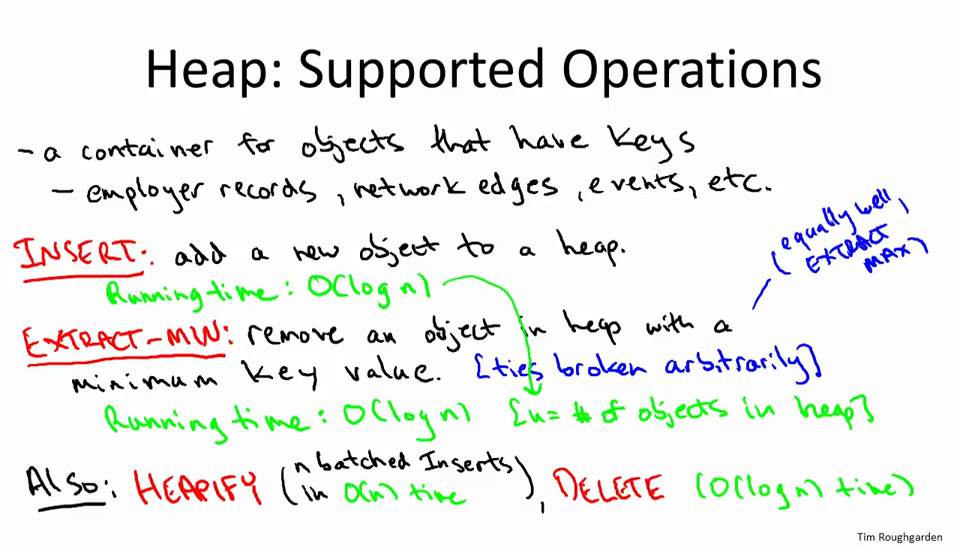 Heap: Supported Operations
- a container for objects that have keys
- employer records, network edges, events, etc.
INSERT: add a new object to a heap.
Running time: O(log n)
(equally well, EXTRACT MAX)
EXTRACT-MIN: remove an object in heap with a
minimum key value. [ties broken arbitrarily]
Running time: O(log n) [n = # of objects in heap]
Also: HEAPIFY (n batched Inserts in O(n) time), DELETE (O(log n) time)
Tim Roughgarden